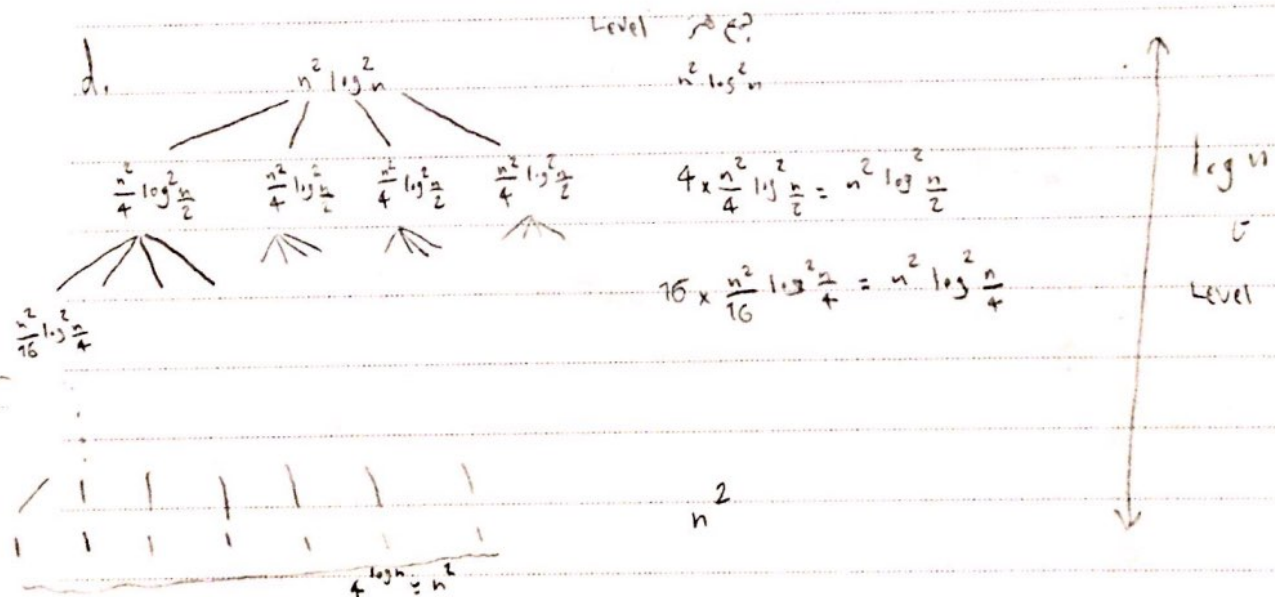 Level جمع هر
d.
n² log² n
n² log² n
n²/4 log² n/2   n²/4 log² n/2   n²/4 log² n/2   n²/4 log² n/2
4 × n²/4 log² n/2 = n² log² n/2
log n
Level
n²/16 log² n/4
16 × n²/16 log² n/4 = n² log² n/4
n²
1 1 1 1 1 1 1
4^(log n) = n²